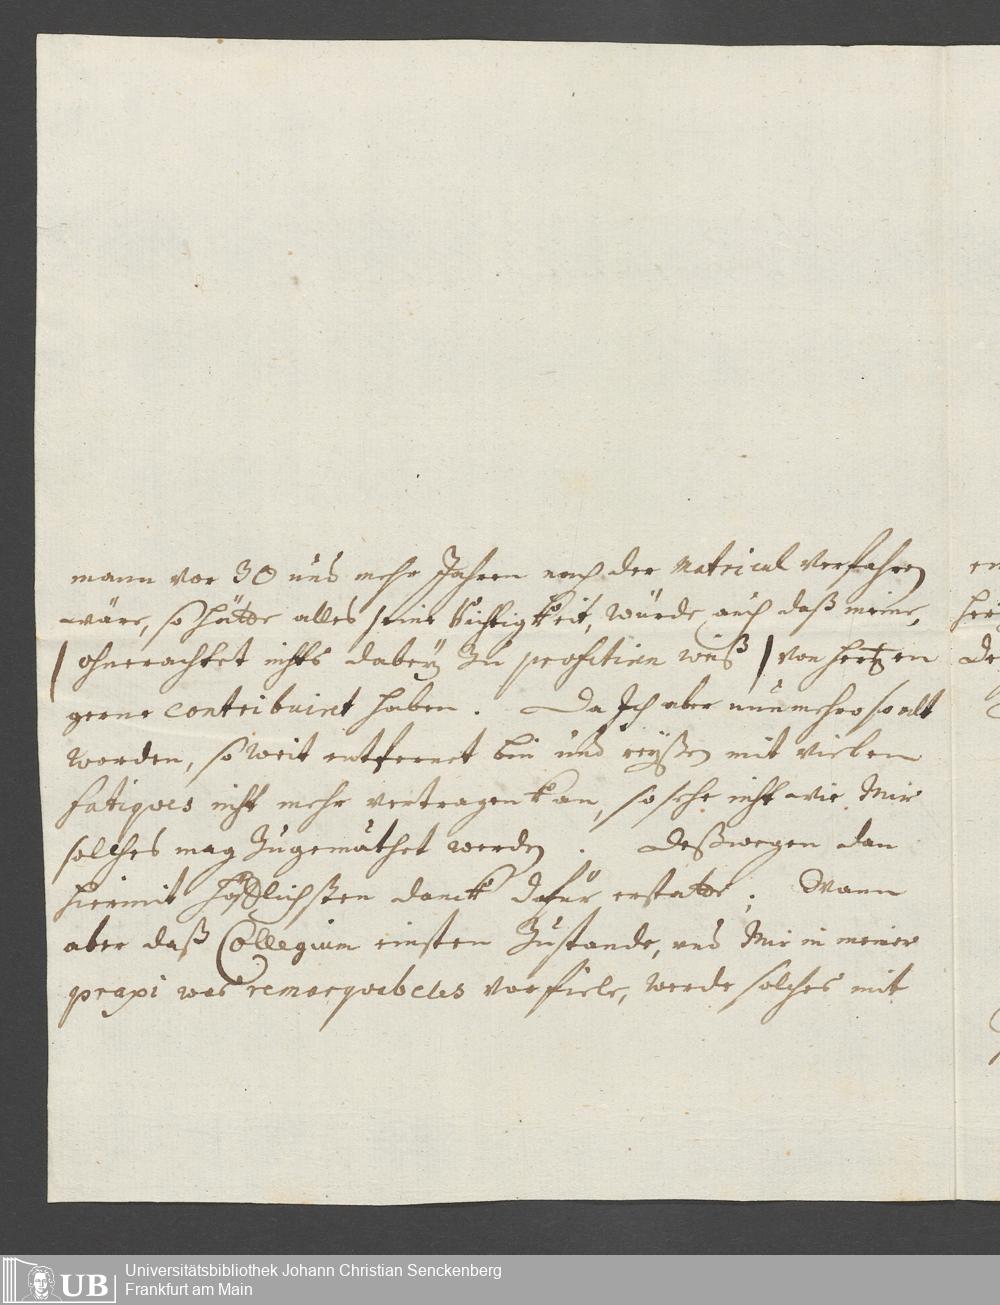 mann vor 30 und mehr Jahren nach der Matricul verfahren
wäre, so hätte alles seine Richtigkeit, würde auch daß meine,
/ohnerachtet nichts dabey zu profitiren weiß/ von hertzen
gerne contribuiret haben. Da Ich aber nunmehro so alt
worden, so weit entfernet bin und reyßen mit vielen
fatiques nicht mehr vertragen kan, so sehe nicht wie Mir
solches mag zugemuthet werden. Deßwegen dan
hiermit höfflichsten danck dafür erstatte; Wann
aber daß Collegium einsten zustande, und Mir in meiner
praxi was remarquables vorfiele, werde solches mit
UB
Universitätsbibliothek Johann Christian Senckenberg
Frankfurt am Main